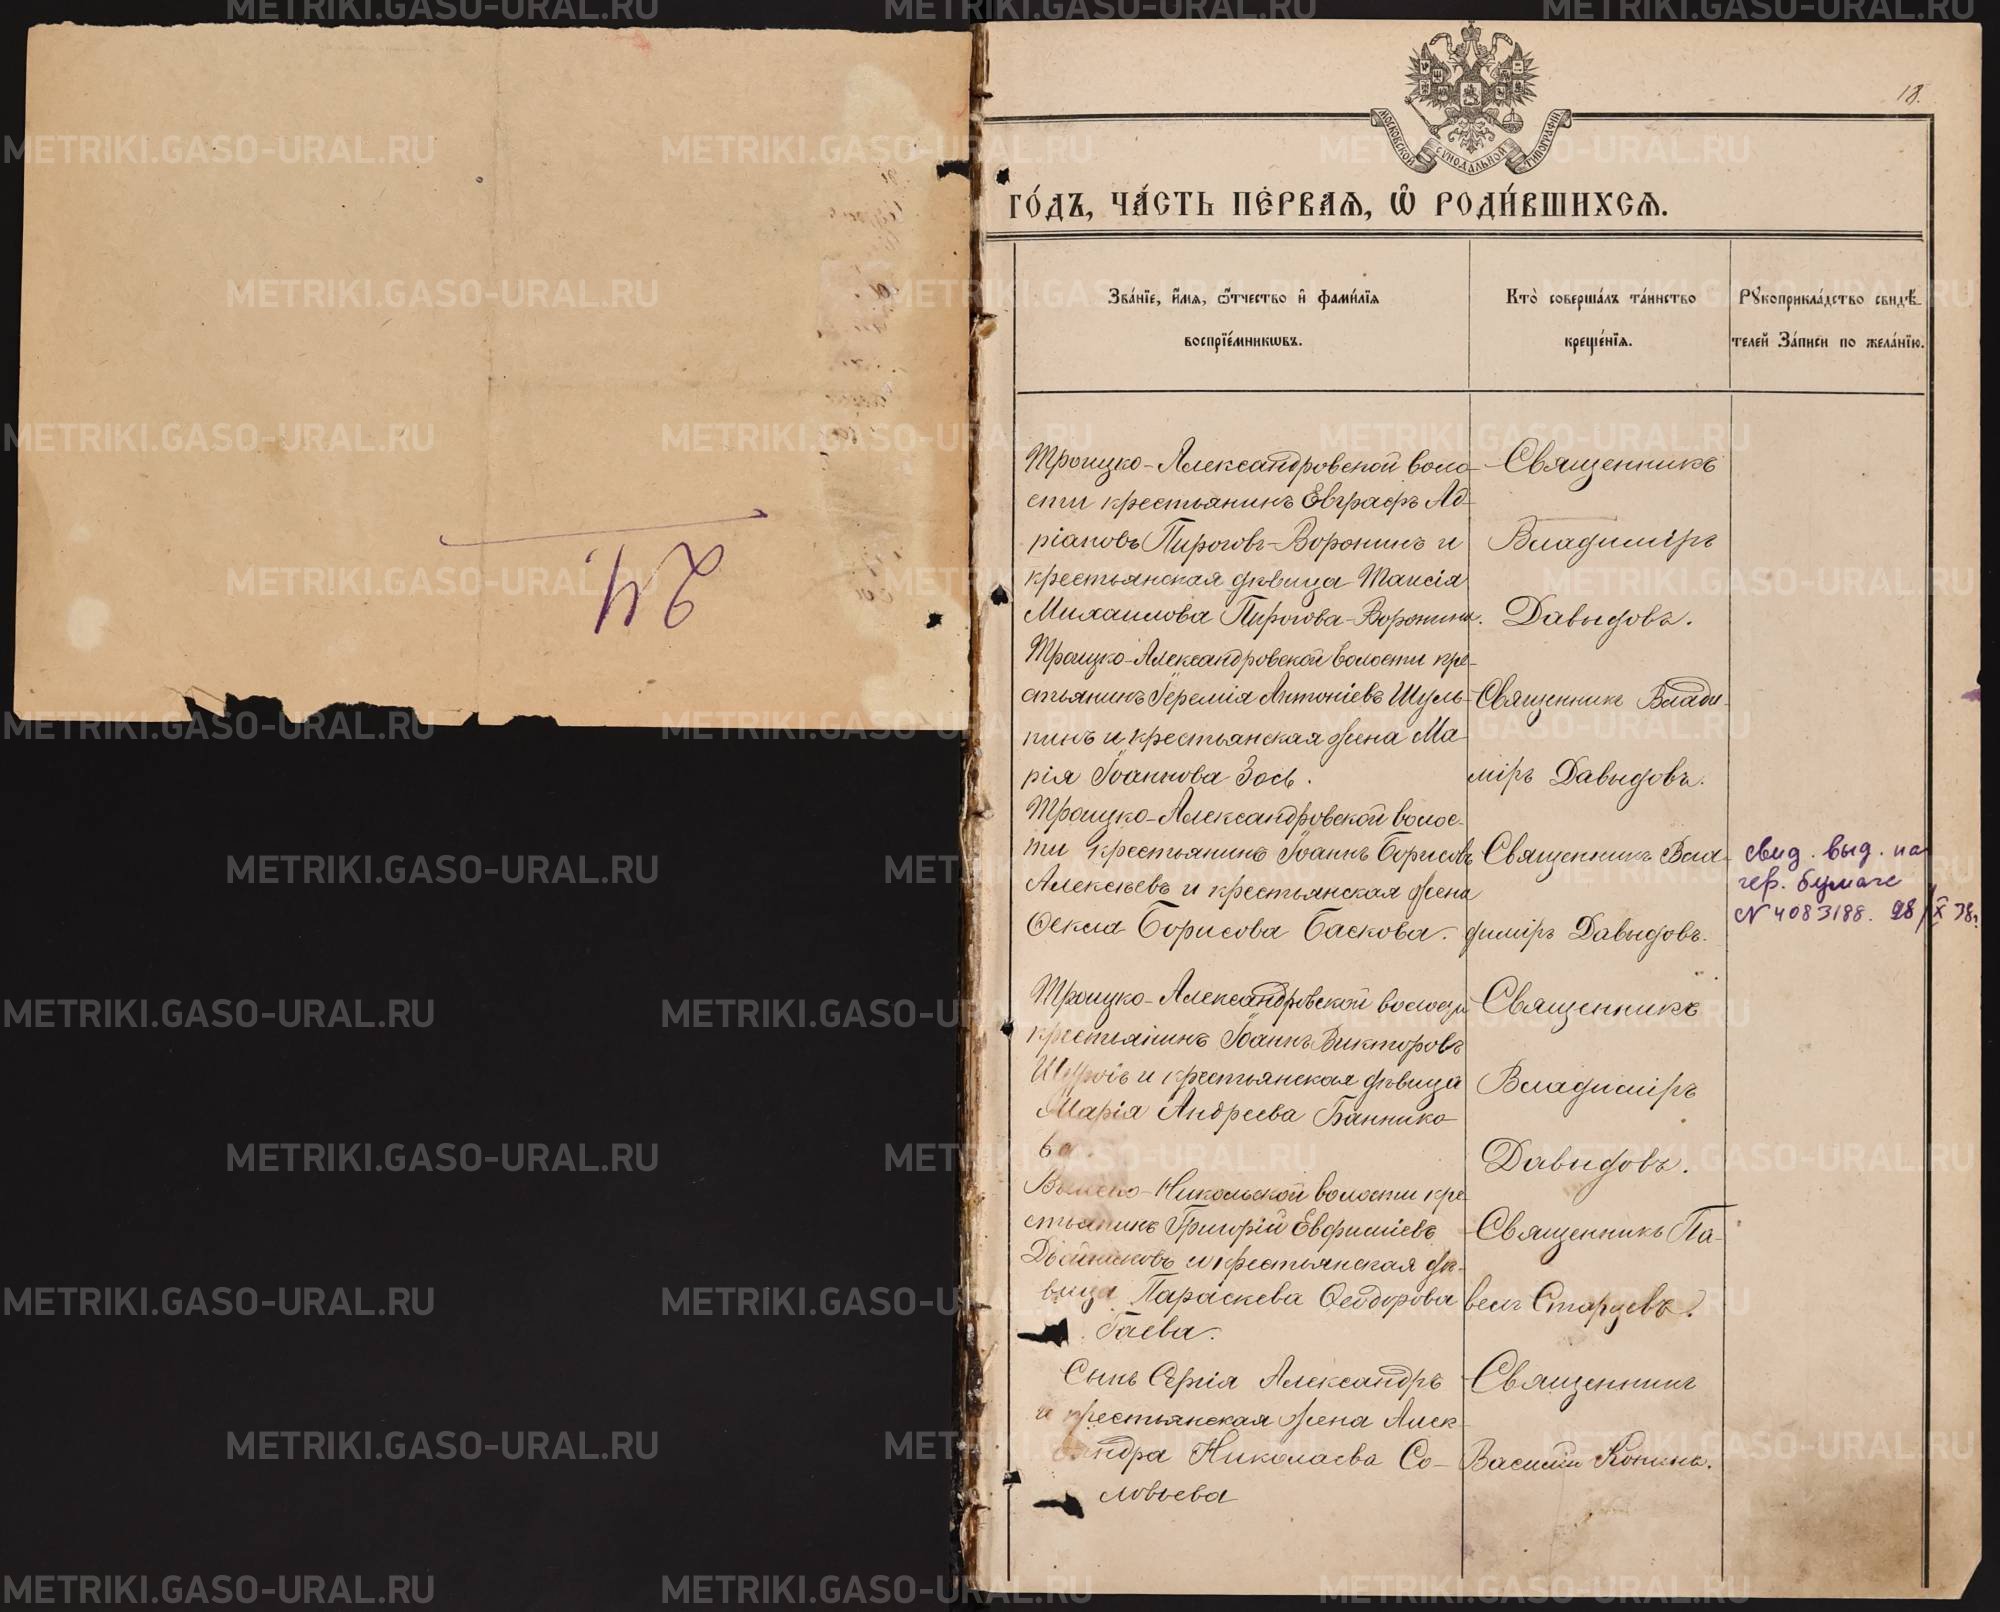 24.
18.
МОСКОВСКОЙ СѴНОДАЛЬНОЙ ТИПОГРАФІИ
ГО́ДЪ, ЧА́СТЬ ПЕ́РВАѦ, Ѿ РОДИ́ВШИХСѦ.
Зва́нїе, и҆́мѧ, ѻ҆́тчество и҆ фами́лїѧ
воспрїе́мникѡвъ.
Кто̀ соверша́лъ та́инство
креще́нїѧ.
Рꙋкоприкла́дство свидѣ́-
телей За́писи по жела́нїю.
Троицко-Александровской воло-
сти крестьянинъ Евграфъ Ад-
ріановъ Пироговъ-Воронинъ и
крестьянская дѣвица Таисія
Михаилова Пирогова-Воронина.
Священникъ
Владиміръ
Давыдовъ.
Троицко-Александровской волости кре-
стьянинъ Іеремія Антоніевъ Шуль-
пинъ и крестьянская жена Ма-
рія Іоаннова Зось.
Священникъ Влади-
міръ Давыдовъ.
Троицко-Александровской волос-
ти крестьянинъ Іоаннъ Борисовъ
Алексѣевъ и крестьянская жена
Ѳекла Борисова Баскова.
Священникъ Вла-
диміръ Давыдовъ.
свид. выд. на
гер. бумаге
N 4083188. 28/X 38г.
Троицко-Александровской волости
крестьянинъ Іоаннъ Викторовъ
и крестьянская дѣвица
Марія Андреева Баннико-
ва.
Священникъ
Владиміръ
Давыдовъ.
Никольской волости кре-
стьянинъ Григорій Евфиміевъ
Двойниковъ и крестьянская дѣ-
вица Параскева Ѳеодорова
Гаева.
Священникъ Па-
велъ Старцевъ.
Сынъ Сергія Александръ
и крестьянская жена Алек-
сандра Николаева Со-
ловьева
Священникъ
Василій Конинъ.
METRIKI.GASO-URAL.RU